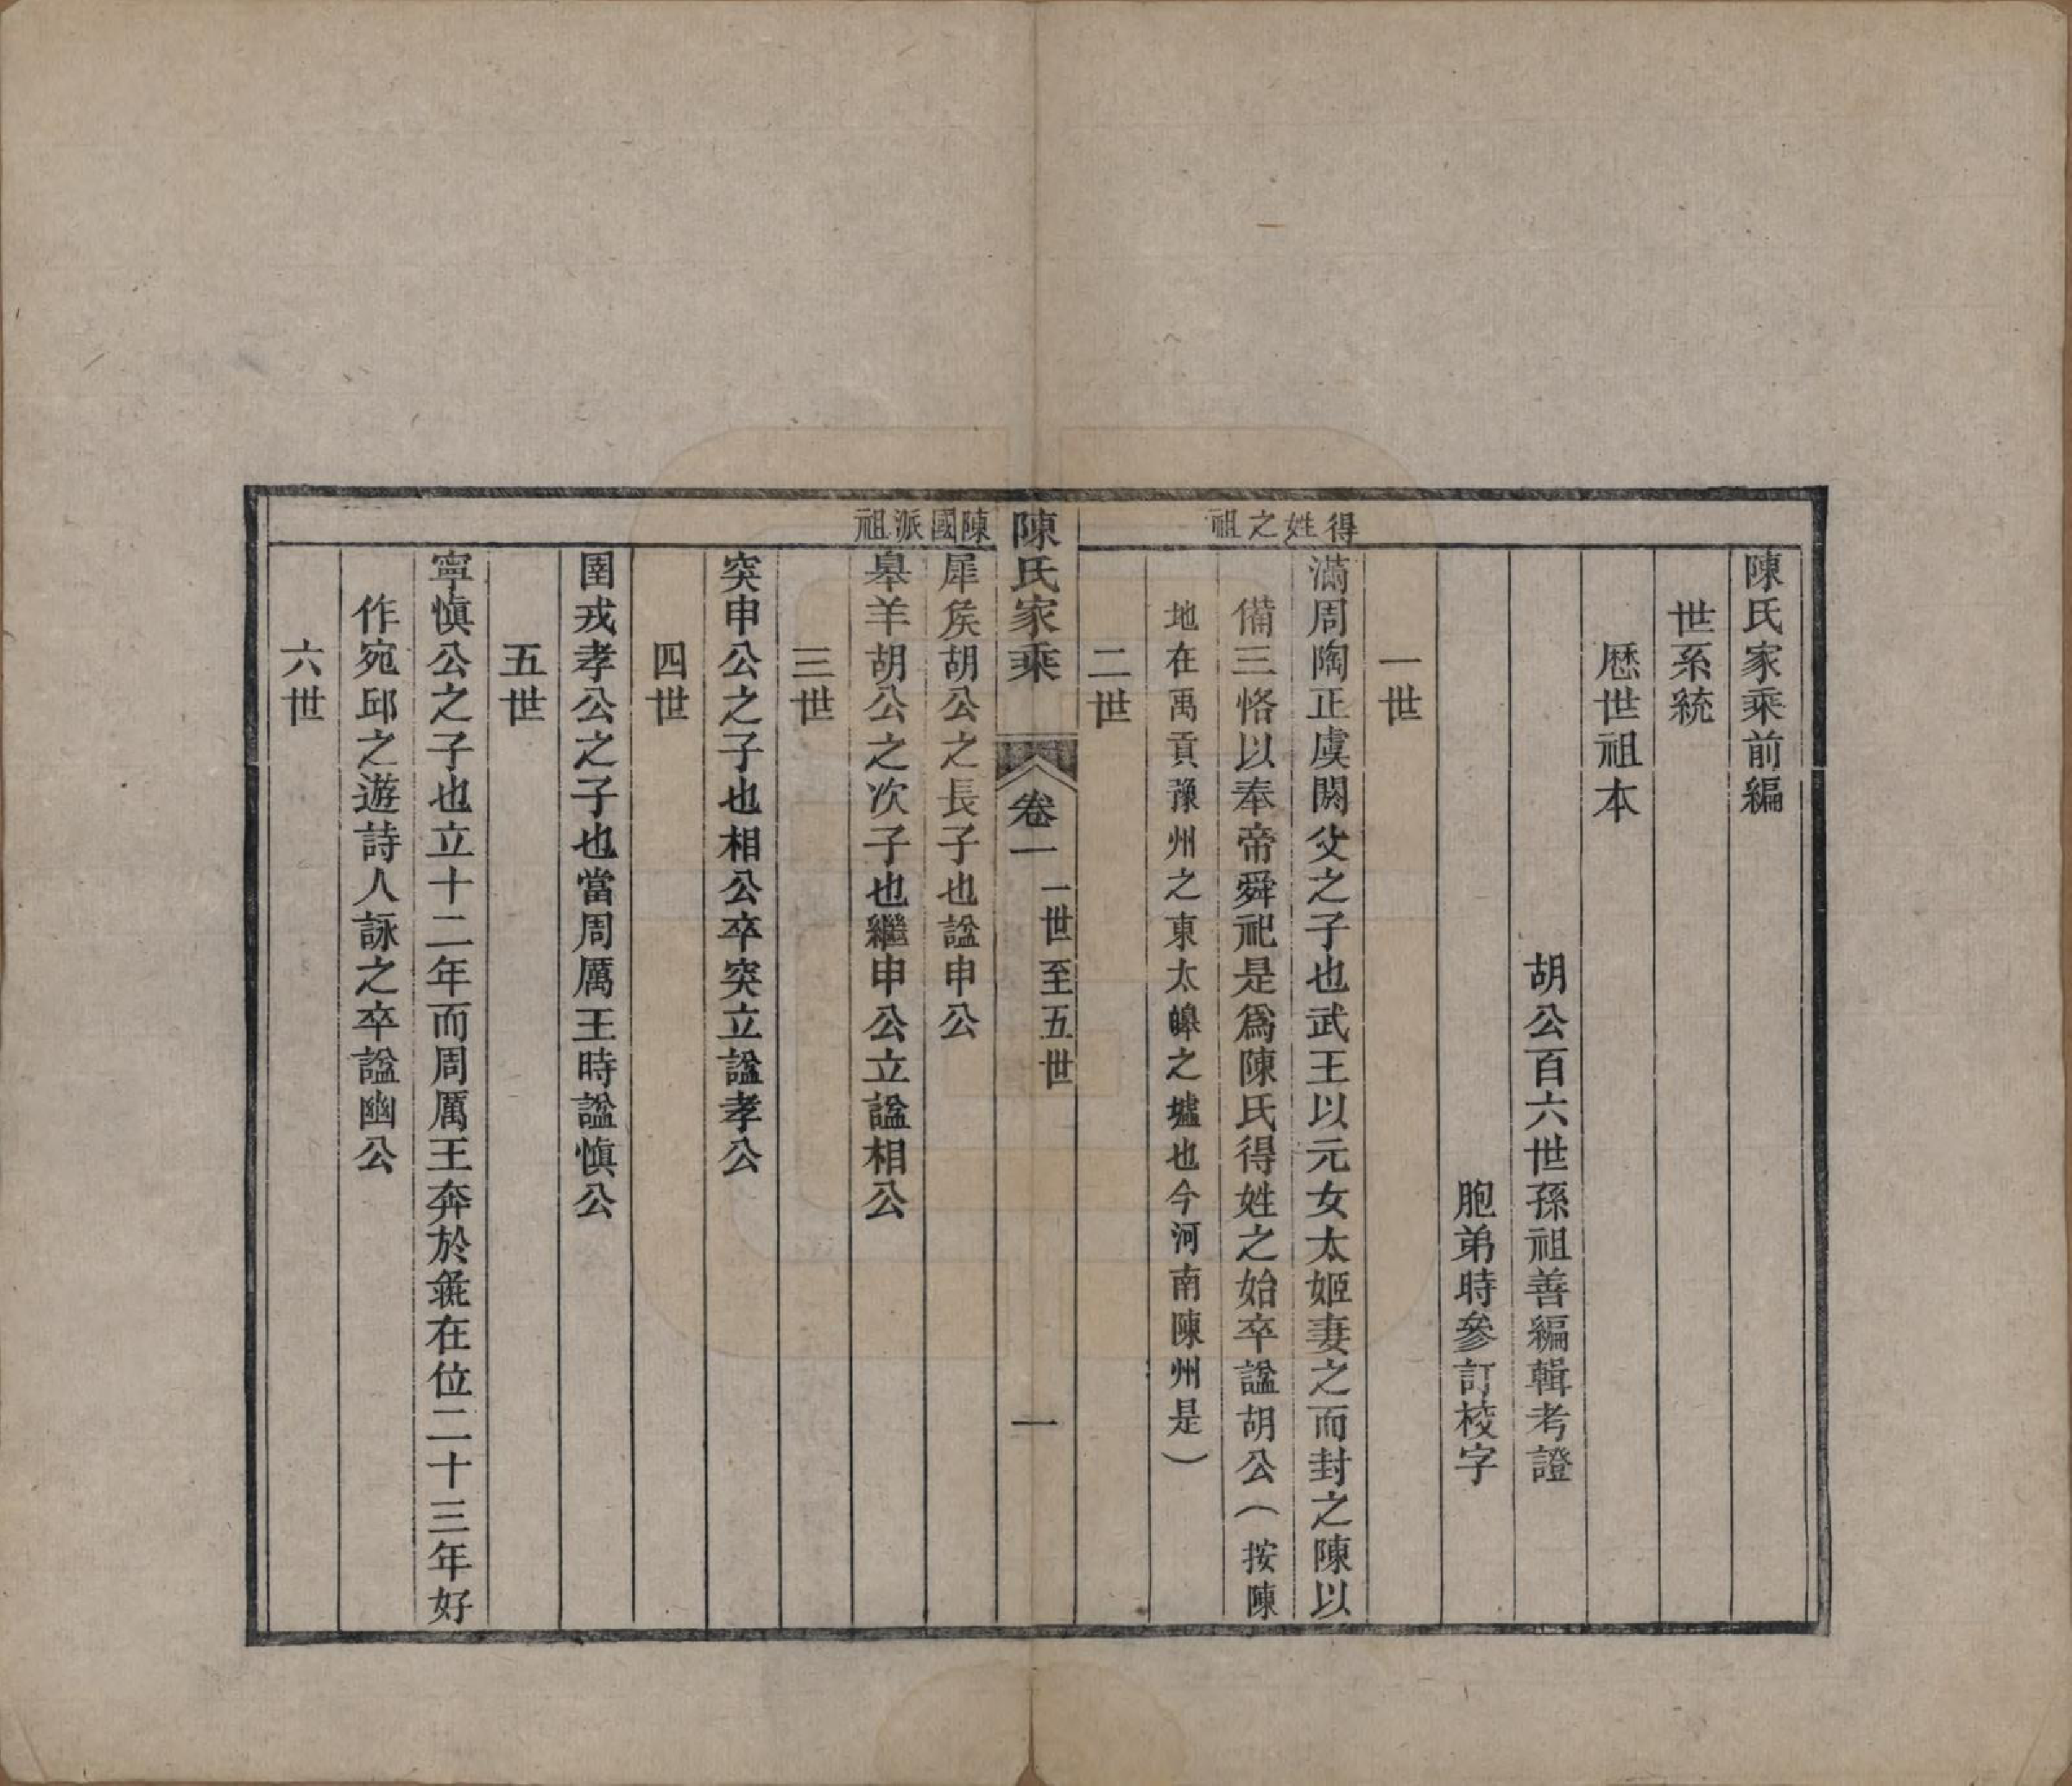 陳氏家乘前編
世系統
歴世祖本
胡公百六世孫祖善編輯考證
胞弟時參訂校字
一世
得姓之祖
滿周陶正虞閼父之子也武王以元女太姬妻之而封之陳以
備三恪以奉帝舜祀是爲陳氏得姓之始卒諡胡公（按陳
地在禹貢豫州之東太皞之墟也今河南陳州是）
二世
陳氏家乘
卷一
一世至五世
一
陳國派祖
犀矦胡公之長子也諡申公
皋羊胡公之次子也繼申公立諡相公
三世
突申公之子也相公卒突立諡孝公
四世
圉戎孝公之子也當周厲王時諡愼公
五世
寧愼公之子也立十二年而周厲王奔於彘在位二十三年好
作宛邱之遊詩人詠之卒諡幽公
六世